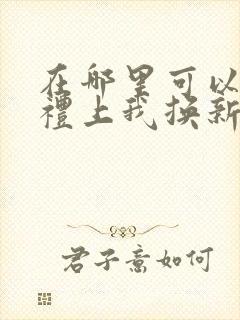 在哪里可以
禮上我换新
君子意如何